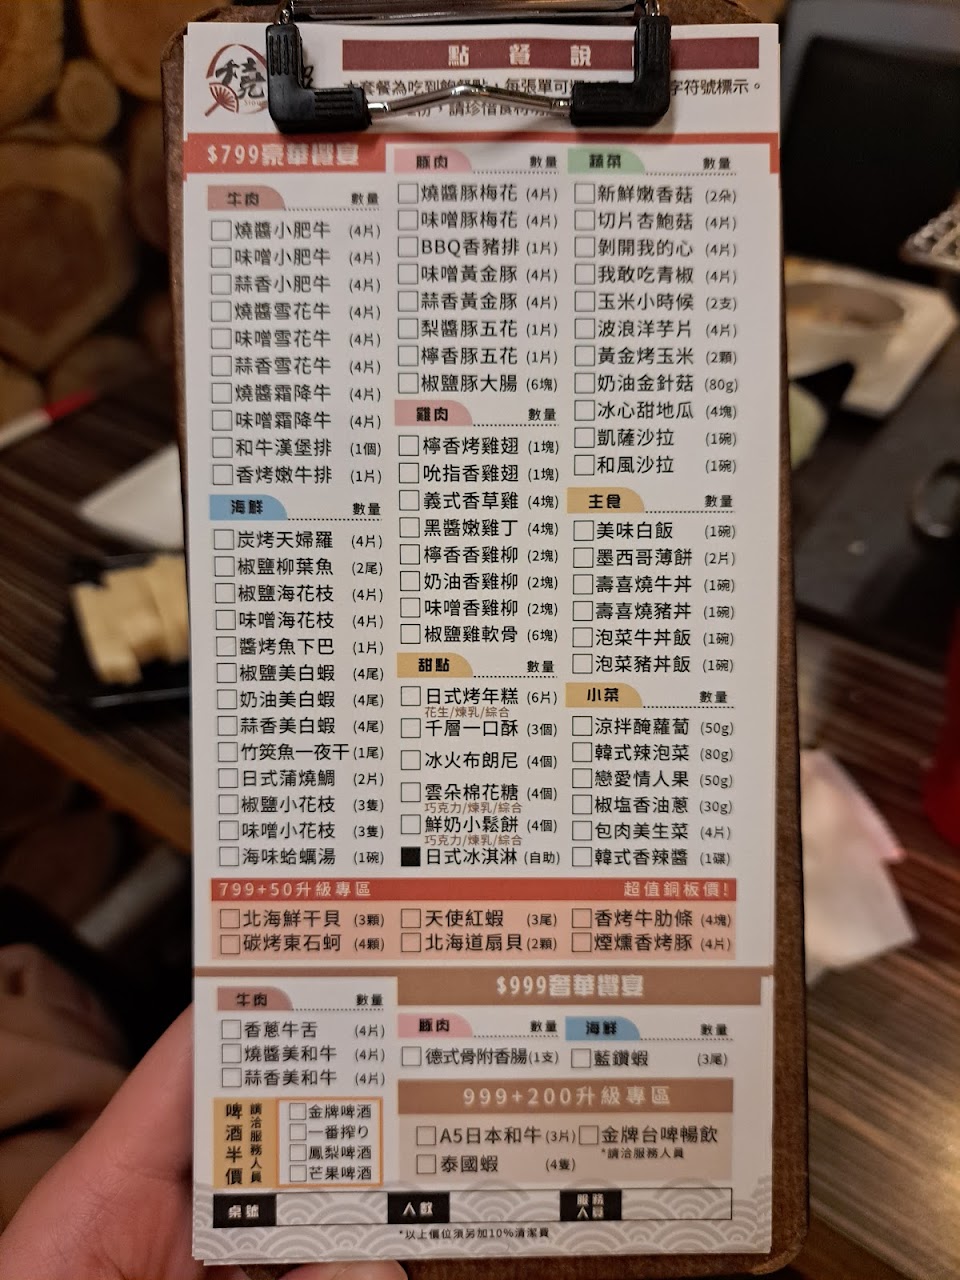 點餐說
燒
本套餐為吃到飽餐點,每張單可
字符號標示。
請珍惜食材
$799豪華饗宴
牛肉 數量
燒醬小肥牛 (4片)
味噌小肥牛 (4片)
蒜香小肥牛 (4片)
燒醬雪花牛 (4片)
味噌雪花牛 (4片)
蒜香雪花牛 (4片)
燒醬霜降牛 (4片)
味噌霜降牛 (4片)
和牛漢堡排 (1個)
香烤嫩牛排 (1片)
海鮮 數量
炭烤天婦羅 (4片)
椒鹽柳葉魚 (2尾)
椒鹽海花枝 (4片)
味噌海花枝 (4片)
醬烤魚下巴 (1片)
椒鹽美白蝦 (4尾)
奶油美白蝦 (4尾)
蒜香美白蝦 (4尾)
竹筴魚一夜干 (1尾)
日式蒲燒鯛 (2片)
椒鹽小花枝 (3隻)
味噌小花枝 (3隻)
海味蛤蠣湯 (1碗)
豚肉 數量
燒醬豚梅花 (4片)
味噌豚梅花 (4片)
BBQ香豬排 (1片)
味噌黃金豚 (4片)
蒜香黃金豚 (4片)
梨醬豚五花 (1片)
檸香豚五花 (1片)
椒鹽豚大腸 (6塊)
雞肉 數量
檸香烤雞翅 (1塊)
吮指香雞翅 (1塊)
義式香草雞 (4塊)
黑醬嫩雞丁 (4塊)
檸香香雞柳 (2塊)
奶油香雞柳 (2塊)
味噌香雞柳 (2塊)
椒鹽雞軟骨 (6塊)
甜點 數量
日式烤年糕 (6片)
花生/煉乳/綜合
千層一口酥 (3個)
冰火布朗尼 (4個)
雲朵棉花糖 (4個)
巧克力/煉乳/綜合
鮮奶小鬆餅 (4個)
巧克力/煉乳/綜合
日式冰淇淋 (自助)
蔬菜 數量
新鮮嫩香菇 (2朵)
切片杏鮑菇 (4片)
剝開我的心 (4片)
我敢吃青椒 (4片)
玉米小時候 (2支)
波浪洋芋片 (4片)
黃金烤玉米 (2顆)
奶油金針菇 (80g)
冰心甜地瓜 (4塊)
凱薩沙拉 (1碗)
和風沙拉 (1碗)
主食 數量
美味白飯 (1碗)
墨西哥薄餅 (2片)
壽喜燒牛丼 (1碗)
壽喜燒豬丼 (1碗)
泡菜牛丼飯 (1碗)
泡菜豬丼飯 (1碗)
小菜 數量
涼拌醃蘿蔔 (50g)
韓式辣泡菜 (80g)
戀愛情人果 (50g)
椒塩香油蔥 (30g)
包肉美生菜 (4片)
韓式香辣醬 (1碟)
799+50升級專區 超值銅板價!
北海鮮干貝 (3顆)
碳烤東石蚵 (4顆)
天使紅蝦 (3尾)
北海道扇貝 (2顆)
香烤牛肋條 (4塊)
煙燻香烤豚 (4片)
$999奢華饗宴
牛肉 數量
香蔥牛舌 (4片)
燒醬美和牛 (4片)
蒜香美和牛 (4片)
豚肉 數量
德式骨附香腸 (1支)
海鮮 數量
藍鑽蝦 (3尾)
999+200升級專區
A5日本和牛 (3片)
泰國蝦 (4隻)
金牌台啤暢飲
*請洽服務人員
啤酒半價
請洽服務人員
金牌啤酒
一番搾り
鳳梨啤酒
芒果啤酒
桌號
人數
服務人員
*以上價位須另加10%清潔費